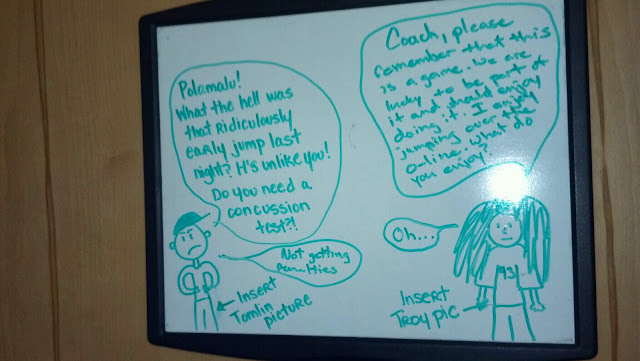 Polamalu!
What the hell was
that Ridiculously
early jump last
night? It's unlike you!
Do you need a
concussion
test?!
Coach, please
remember that this
is a game. We are
lucky to be part of
it and should enjoy
doing it. I enjoy
jumping over the
o-line. What do
you enjoy?
Not getting
Penalties
Oh...
Insert
Tomlin
picture
Insert
Troy pic